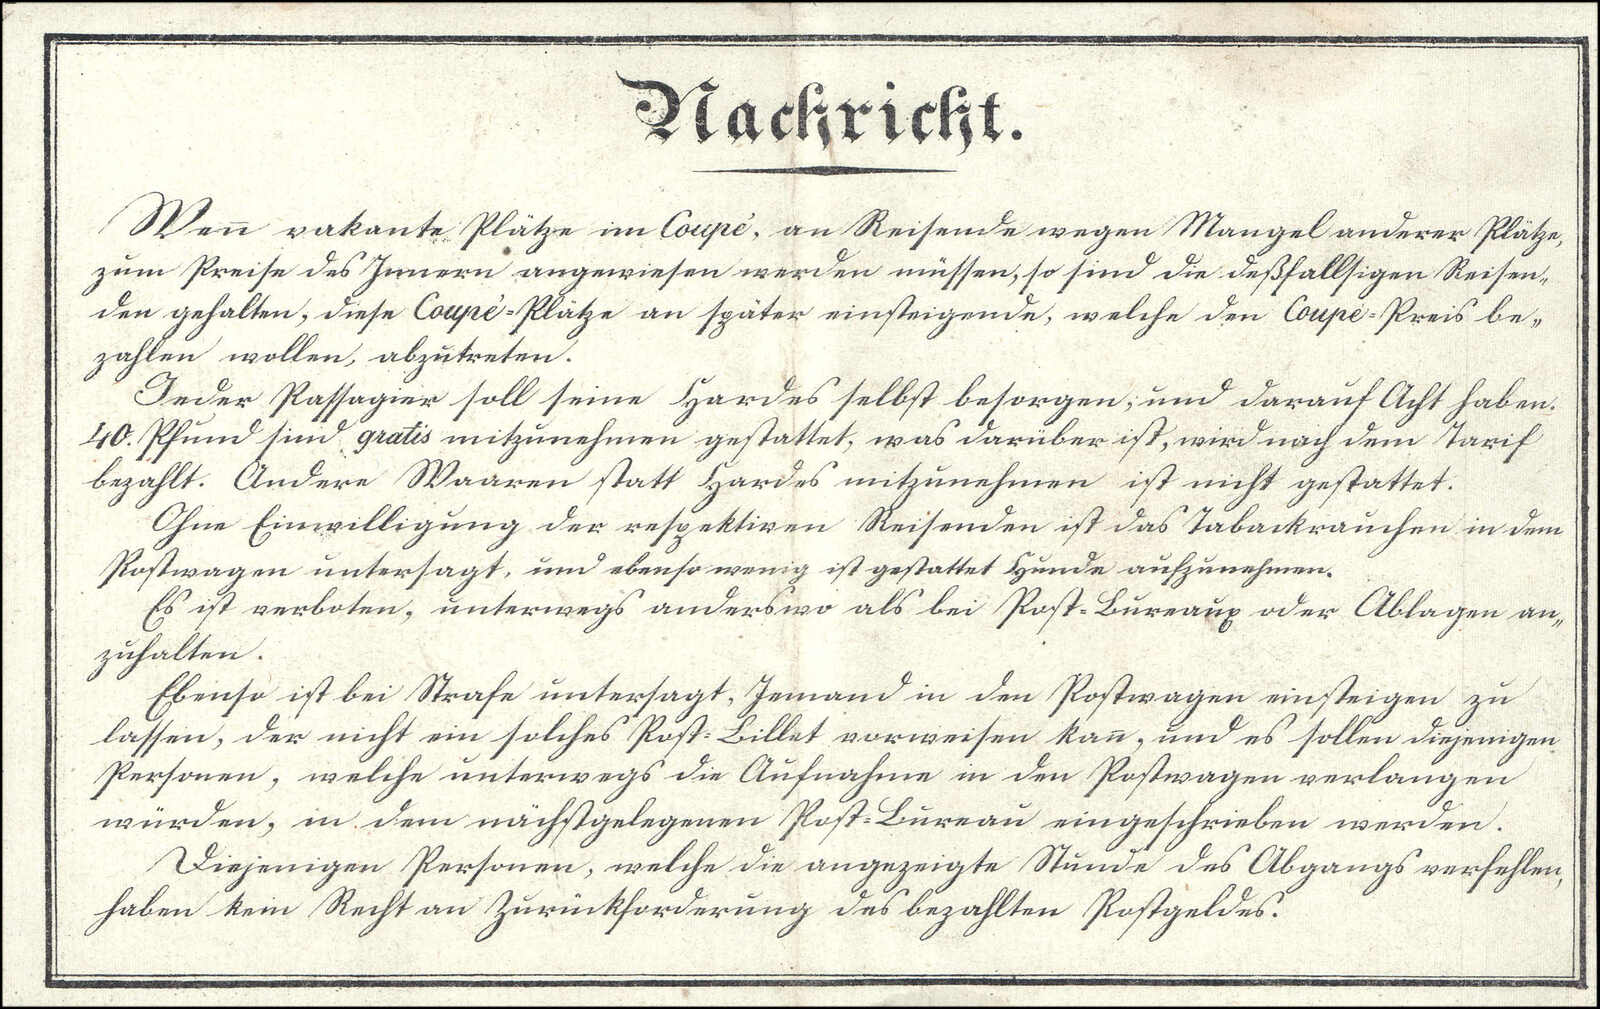 Nachricht.
Wen̄ vakante Plätze im Coupé, an Reisende wegen Mangel anderer Plätze,
zum Preise des Innern angewiesen werden müssen, so sind die deßfallsigen Reisen„
den gehalten, diese Coupé=Plätze an später einsteigende, welche den Coupé=Preis be„
zahlen wollen, abzutreten.
Jeder Passagier soll seine Hardes selbst besorgen, und darauf Acht haben.
40. Pfund sind gratis mitzunehmen gestattet, was darüber ist, wird nach dem Tarif
bezahlt. Andere Waaren statt Hardes mitzunehmen ist nicht gestattet.
Ohne Einwilligung der respektiven Reisenden ist das Tabackrauchen in dem
Postwagen untersagt, und ebenso wenig ist gestattet Hunde aufzunehmen.
Es ist verboten, unterwegs anderswo als bei Post=Bureaux oder Ablagen an„
zuhalten.
Ebenso ist bei Strafe untersagt, Jemand in den Postwagen einsteigen zu
lassen, der nicht ein solches Post=Billet vorweisen kan̄, und es sollen diejenigen
Personen, welche unterwegs die Aufnahme in den Postwagen verlangen
würden, in dem nächstgelegenen Post=Bureau eingeschrieben werden.
Diejenigen Personen, welche die angezeigte Stunde des Abgangs verfehlen,
haben kein Recht an Zurückforderung des bezahlten Postgeldes.